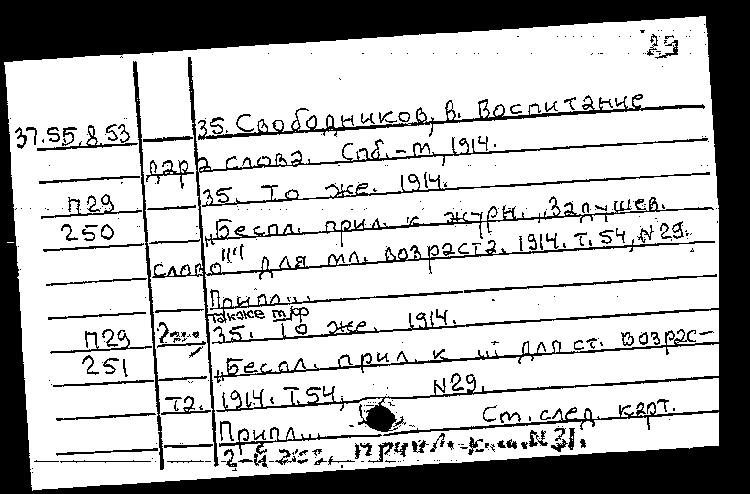 29
37.55.8.53 35. Свободников, В. Воспитание
дара слова. Спб.-М., 1914.
П29 35. То же. 1914.
250 „Беспл. прил. к журн. „Задушев.
слово"" для мл. возраста. 1914. Т. 54, N 29.
Припл...
также м/ф
П29 35. То же. 1914.
251 „Беспл. прил. к ... для ст. возрас-
та. 1914. Т. 54, N 29.
Припл... См. след. карт.
2-й экз. N 31.